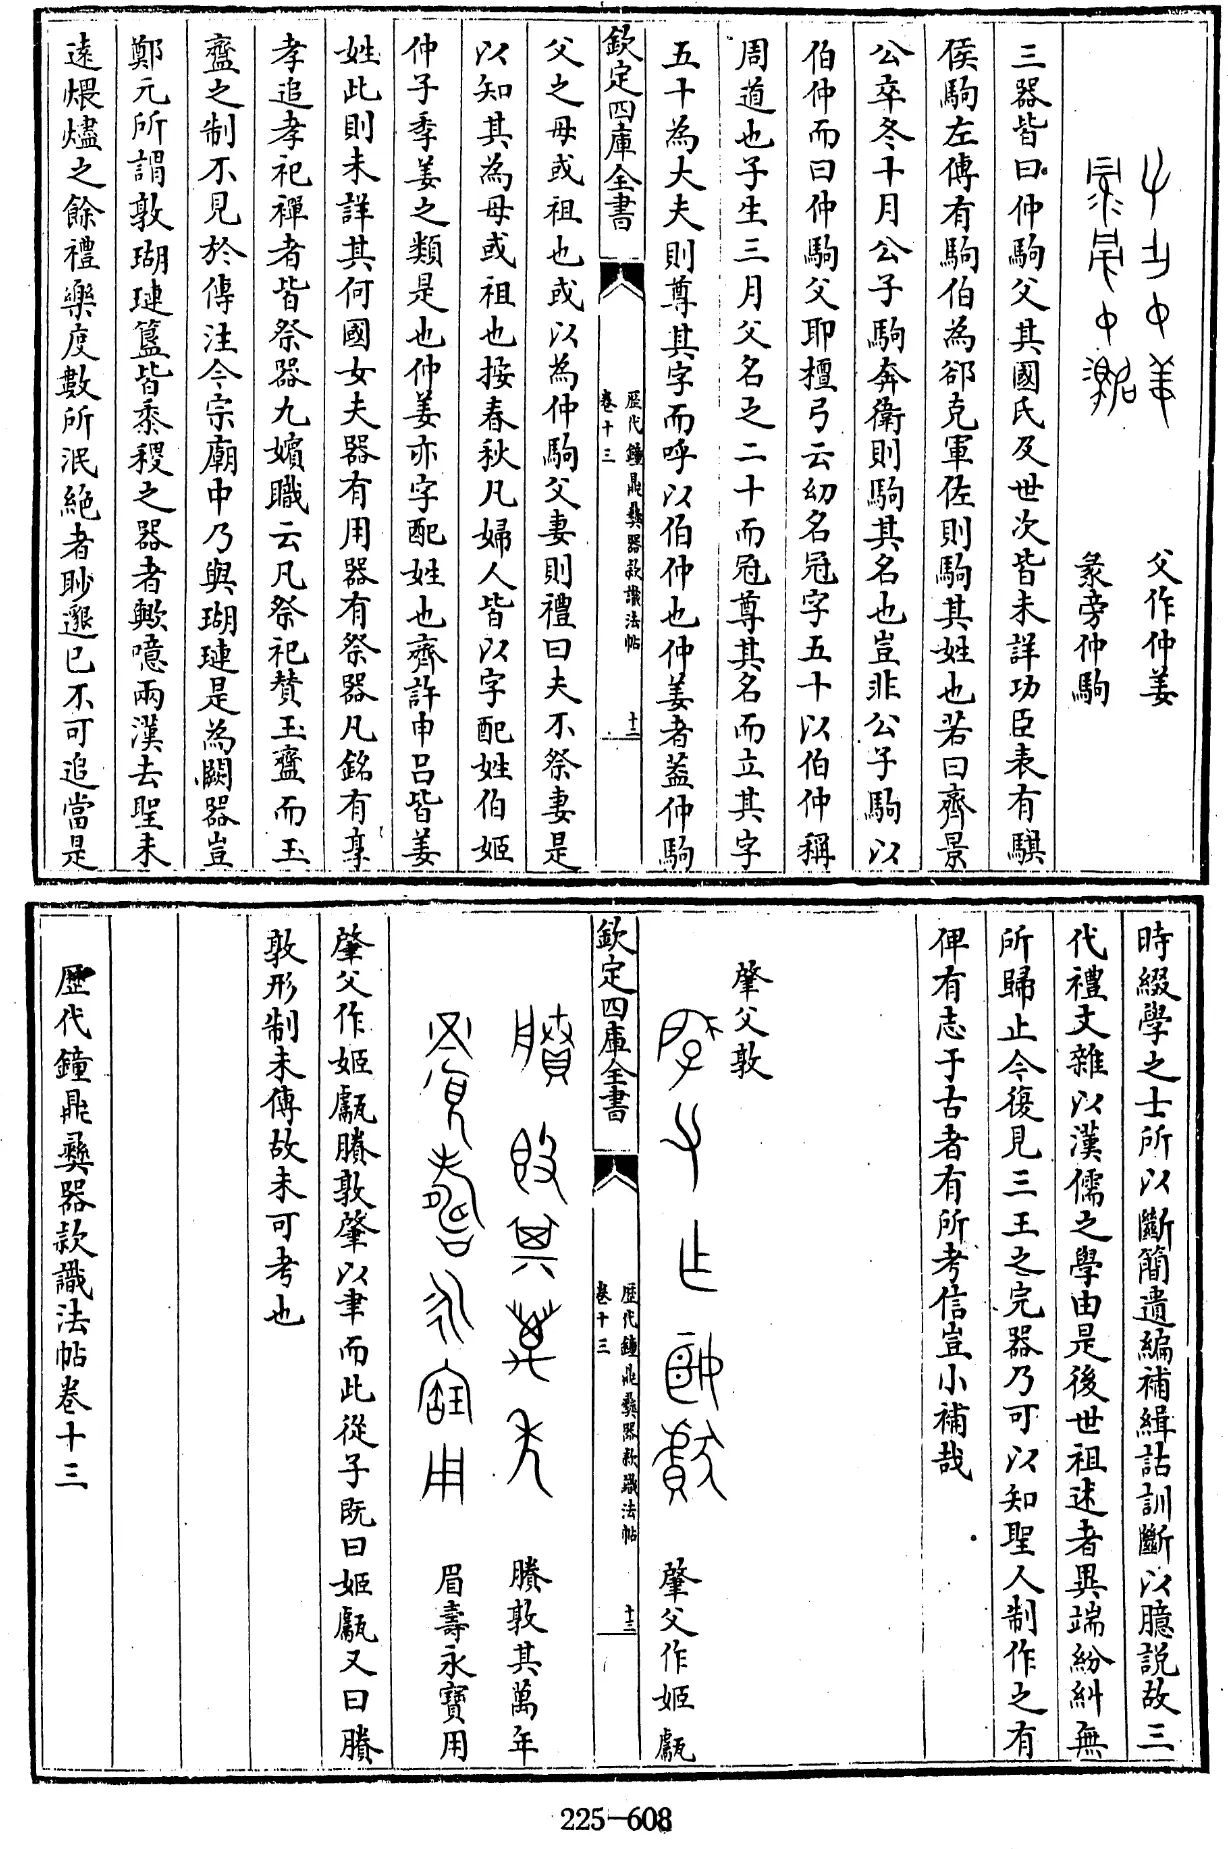 父作仲姜
彔旁仲駒
三器皆曰仲駒父其國氏及世次皆未詳功臣表有騏
侯駒左傳有駒伯為郤克軍佐則駒其姓也若曰齊景
公卒冬十月公子駒奔衛則駒其名也豈非公子駒以
伯仲而曰仲駒父耶檀弓云幼名冠字五十以伯仲稱
周道也子生三月父名之二十而冠尊其名而立其字
五十為大夫則尊其字而呼以伯仲也仲姜者蓋仲駒
欽定四庫全書
歷代鐘鼎彝器款識法帖
卷十三
十二
父之母或祖也或以為仲駒父妻則禮曰夫不祭妻是
以知其為母或祖也按春秋凡婦人皆以字配姓伯姬
仲子季姜之類是也仲姜亦字配姓也齊許申呂皆姜
姓此則未詳其何國女夫器有用器有祭器凡銘有享
孝追孝祀禪者皆祭器九嬪職云凡祭祀贊玉齍而玉
齍之制不見於傳注今宗廟中乃與瑚璉是為闕器豈
鄭元所謂敦瑚璉簋皆黍稷之器者歟噫兩漢去聖未
遠煨燼之餘禮樂度數所泯絕者眇邈已不可追當是
時綴學之士所以斷簡遺編補緝詁訓斷以臆説故三
代禮文雜以漢儒之學由是後世祖述者異端紛糾無
所歸止今復見三王之完器乃可以知聖人制作之有
俾有志于古者有所考信豈小補哉
肈父敦
肈父作姬鬳瓦
欽定四庫全書
歷代鐘鼎彝器款識法帖
卷十三
十三
賸敦其萬年
眉壽永寶用
肈父作姬鬳瓦賸敦肈以聿而此從子既曰姬鬳瓦又曰賸
敦形制未傳故未可考也
歷代鐘鼎彝器款識法帖卷十三
225-608